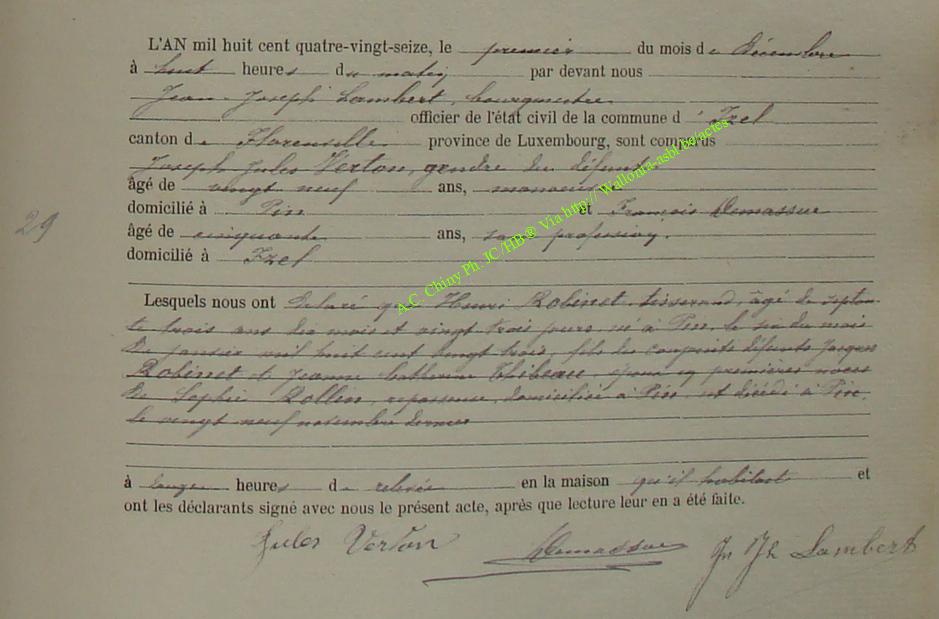 L'AN mil huit cent quatre-vingt-seize, le premier du mois de décembre
à huit heures du matin par devant nous
Jean Joseph Lambert, bourgmestre
officier de l'état civil de la commune d'Izel
canton de Florenville province de Luxembourg, sont comparus
Joseph Jules Verton, gendre du défunt
âgé de vingt neuf ans, manoeuvre
domicilié à Pin et François Demasseur
âgé de cinquante ans, sans profession,
domicilié à Izel
29
A.C. Chiny Ph. JC/HB ® Via http:// Wallonia-asbl.be/actes
Lesquels nous ont déclaré que Henri Robinet, tisserand, âgé de septan-
te trois ans dix mois et vingt trois jours, né à Pin, le six du mois
de janvier mil huit cent vingt trois, fils des conjoints défunts Jacques
Robinet et Jeanne Catherine Thibeau, époux en premières noces
de Sophie Rollin, repasseuse, domiciliée à Pin, est décédé à Pin,
le vingt neuf novembre dernier
à heures de relevée en la maison qu'il habitait et
ont les déclarants signé avec nous le présent acte, après que lecture leur en a été faite.
Jules Verton Demasseur Jn Jh Lambert